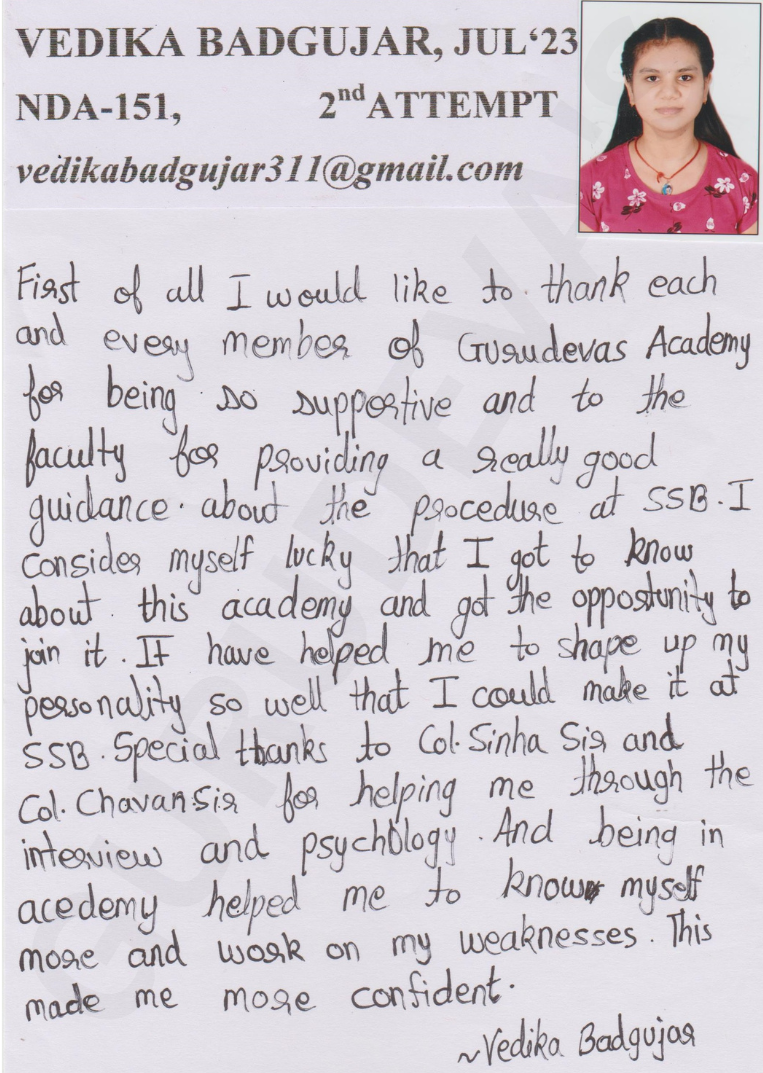 VEDIKA BADGUJAR, JUL‘23
NDA-151, 2nd ATTEMPT
vedikabadgujar311@gmail.com
First of all I would like to thank each
and every member of Gurudevas Academy
for being so supportive and to the
faculty for providing a really good
guidance. about the procedure at SSB. I
consider myself lucky that I got to know
about this academy and got the opportunity to
join it. It have helped me to shape up my
personality so well that I could make it at
SSB. Special thanks to Col. Sinha Sir and
Col. Chavan Sir for helping me through the
interview and psychology. And being in
acedemy helped me to know myself
more and work on my weaknesses. This
made me more confident.
~Vedika Badgujar